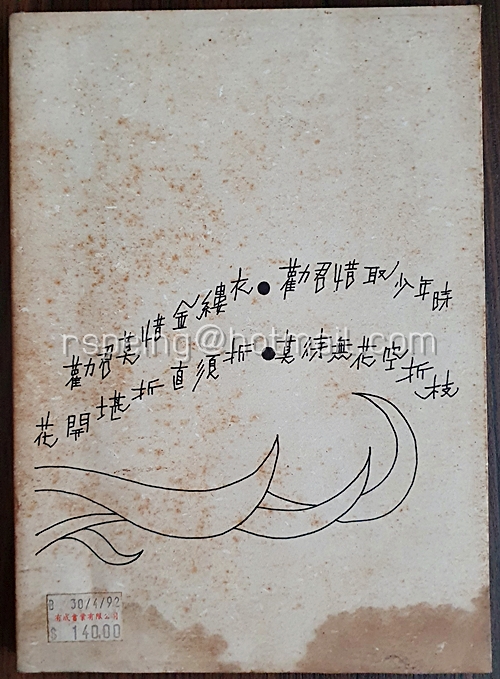 勸君莫惜金縷衣●勸君惜取少年時
花開堪折直須折●莫待無花空折枝
rspring@hotmail.com
B 30/4/92
有成書業有限公司
$ 140.00